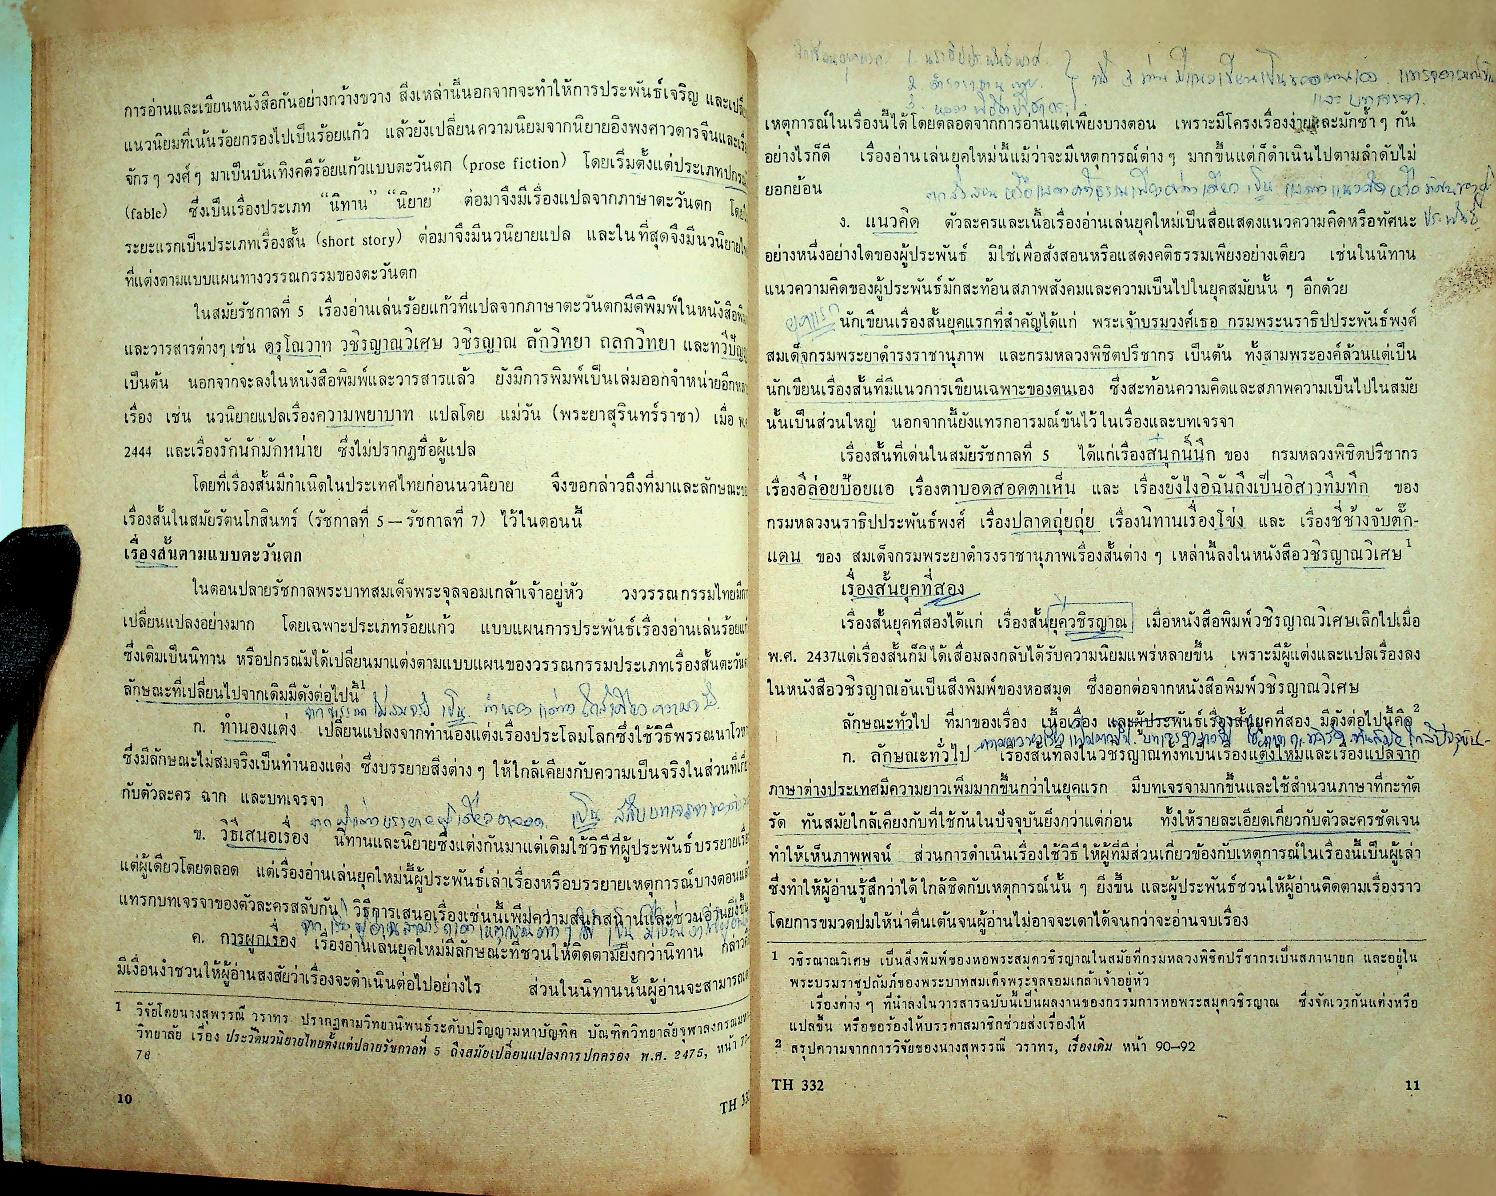 การอ่านและเขียนหนังสือกันอย่างกว้างขวาง สิ่งเหล่านี้นอกจากจะทำให้การประพันธ์เจริญ และเปลี่
แนวนิยมที่เน้นร้อยกรองไปเป็นร้อยแก้ว แล้วยังเปลี่ยนความนิยมจากนิยายอิงพงศาวดารจีนและเรื่
จักร ๆ วงศ์ ๆ มาเป็นบันเทิงคดีร้อยแก้วแบบตะวันตก (prose fiction) โดยเริ่มตั้งแต่ประเภทปกรณ
(fable) ซึ่งเป็นเรื่องประเภท “นิทาน” “นิยาย” ต่อมาจึงมีเรื่องแปลจากภาษาตะวันตก โดย
ระยะแรกเป็นประเภทเรื่องสั้น (short story) ต่อมาจึงมีนวนิยายแปล และในที่สุดจึงมีนวนิยายไท
ที่แต่งตามแบบแผนทางวรรณกรรมของตะวันตก
ในสมัยรัชกาลที่ 5 เรื่องอ่านเล่นร้อยแก้วที่แปลจากภาษาตะวันตกมีตีพิมพ์ในหนังสือพิม
และวารสารต่างๆ เช่น ดรุโณวาท วชิรญาณวิเศษ วชิรญาณ ลักวิทยา ถลกวิทยา และทวีปัญญ
เป็นต้น นอกจากจะลงในหนังสือพิมพ์และวารสารแล้ว ยังมีการพิมพ์เป็นเล่มออกจำหน่ายอีกหลาย
เรื่อง เช่น นวนิยายแปลเรื่องความพยาบาท แปลโดย แม่วัน (พระยาสุรินทร์ราชา) เมื่อ พ.ศ
2444 และเรื่องรักนักมักหน่าย ซึ่งไม่ปรากฏชื่อผู้แปล
โดยที่เรื่องสั้นมีกำเนิดในประเทศไทยก่อนนวนิยาย จึงขอกล่าวถึงที่มาและลักษณะขอ
เรื่องสั้นในสมัยรัตนโกสินทร์ (รัชกาลที่ 5 — รัชกาลที่ 7) ไว้ในตอนนี้
เรื่องสั้นตามแบบตะวันตก
ในตอนปลายรัชกาลพระบาทสมเด็จพระจุลจอมเกล้าเจ้าอยู่หัว วงวรรณกรรมไทยมีกา
เปลี่ยนแปลงอย่างมาก โดยเฉพาะประเภทร้อยแก้ว แบบแผนการประพันธ์เรื่องอ่านเล่นร้อยแก้
ซึ่งเดิมเป็นนิทาน หรือปกรณัมได้เปลี่ยนมาแต่งตามแบบแผนของวรรณกรรมประเภทเรื่องสั้นตะวันต
ลักษณะที่เปลี่ยนไปจากเดิมมีดังต่อไปนี้1
ก. ทำนองแต่ง เปลี่ยนแปลงจากทำนองแต่งเรื่องประโลมโลกซึ่งใช้วิธีพรรณนาโวหา
ซึ่งมีลักษณะไม่สมจริงเป็นทำนองแต่ง ซึ่งบรรยายสิ่งต่าง ๆ ให้ใกล้เคียงกับความเป็นจริงในส่วนที่เกี่ย
กับตัวละคร ฉาก และบทเจรจา
ข. วิธีเสนอเรื่อง นิทานและนิยายซึ่งแต่งกันมาแต่เดิมใช้วิธีที่ผู้ประพันธ์บรรยายเรื่อ
แต่ผู้เดียวโดยตลอด แต่เรื่องอ่านเล่นยุคใหม่นี้ผู้ประพันธ์เล่าเรื่องหรือบรรยายเหตุการณ์บางตอนแล้
แทรกบทเจรจาของตัวละครสลับกัน วิธีการเสนอเรื่องเช่นนี้เพิ่มความสนุกสนานและชวนอ่านยิ่งขึ้น
ค. การผูกเรื่อง เรื่องอ่านเล่นยุคใหม่มีลักษณะที่ชวนให้ติดตามยิ่งกว่านิทาน กล่าวคื
มีเงื่อนงำชวนให้ผู้อ่านสงสัยว่าเรื่องจะดำเนินต่อไปอย่างไร ส่วนในนิทานนั้นผู้อ่านจะสามารถเด
1 วิจัยโดยนางสุพรรณี วราทร ปรากฏตามวิทยานิพนธ์ระดับปริญญามหาบัณฑิต บัณฑิตวิทยาลัยจุฬาลงกรณมหา
วิทยาลัย เรื่อง ประวัตินวนิยายไทยตั้งแต่ปลายรัชกาลที่ 5 ถึงสมัยเปลี่ยนแปลงการปกครอง พ.ศ. 2475, หน้า
78
10
TH 33
เหตุการณ์ในเรื่องนี้ได้โดยตลอดจากการอ่านแต่เพียงบางตอน เพราะมีโครงเรื่องง่ายและมักซ้ำ ๆ กัน
อย่างไรก็ดี เรื่องอ่านเล่นยุคใหม่นี้แม้ว่าจะมีเหตุการณ์ต่าง ๆ มากขึ้นแต่ก็ดำเนินไปตามลำดับไม่
ยอกย้อน
ง. แนวคิด ตัวละครและเนื้อเรื่องอ่านเล่นยุคใหม่เป็นสื่อแสดงแนวความคิดหรือทัศนะ
อย่างหนึ่งอย่างใดของผู้ประพันธ์ มิใช่เพื่อสั่งสอนหรือแสดงคติธรรมเพียงอย่างเดียว เช่นในนิทาน
แนวความคิดของผู้ประพันธ์มักสะท้อนสภาพสังคมและความเป็นไปในยุคสมัยนั้น ๆ อีกด้วย
นักเขียนเรื่องสั้นยุคแรกที่สำคัญได้แก่ พระเจ้าบรมวงศ์เธอ กรมพระนราธิปประพันธ์พงศ์
สมเด็จกรมพระยาดำรงราชานุภาพ และกรมหลวงพิชิตปรีชากร เป็นต้น ทั้งสามพระองค์ล้วนแต่เป็น
นักเขียนเรื่องสั้นที่มีแนวการเขียนเฉพาะของตนเอง ซึ่งสะท้อนความคิดและสภาพความเป็นไปในสมัย
นั้นเป็นส่วนใหญ่ นอกจากนี้ยังแทรกอารมณ์ขันไว้ในเรื่องและบทเจรจา
เรื่องสั้นที่เด่นในสมัยรัชกาลที่ 5 ได้แก่เรื่องสนุกนึ๊นึก ของ กรมหลวงพิชิตปรีชากร
เรื่องอีล่อยป๊อยแอ เรื่องตาบอดสอดตาเห็น และ เรื่องยังไงอิฉันถึงเป็นอิสาวทึมทึก ของ
กรมหลวงนราธิปประพันธ์พงศ์ เรื่องปลาดถุ่ยถุ่ย เรื่องนิทานเรื่องโข่ง และ เรื่องขี่ช้างจับตั๊ก-
แตน ของ สมเด็จกรมพระยาดำรงราชานุภาพเรื่องสั้นต่าง ๆ เหล่านี้ลงในหนังสือวชิรญาณวิเศษ1
เรื่องสั้นยุคที่สอง
เรื่องสั้นยุคที่สองได้แก่ เรื่องสั้นยุควชิรญาณ เมื่อหนังสือพิมพ์วชิรญาณวิเศษเลิกไปเมื่อ
พ.ศ. 2437แต่เรื่องสั้นก็มิได้เสื่อมลงกลับได้รับความนิยมแพร่หลายขึ้น เพราะมีผู้แต่งและแปลเรื่องลง
ในหนังสือวชิรญาณอันเป็นสิ่งพิมพ์ของหอสมุด ซึ่งออกต่อจากหนังสือพิมพ์วชิรญาณวิเศษ
ลักษณะทั่วไป ที่มาของเรื่อง เนื้อเรื่อง และผู้ประพันธ์เรื่องสั้นยุคที่สอง มีดังต่อไปนี้คือ2
ก. ลักษณะทั่วไป เรื่องสั้นที่ลงในวชิรญาณทั้งที่เป็นเรื่องแต่งใหม่และเรื่องแปลจาก
ภาษาต่างประเทศมีความยาวเพิ่มมากขึ้นกว่าในยุคแรก มีบทเจรจามากขึ้นและใช้สำนวนภาษาที่กะทัด
รัด ทันสมัยใกล้เคียงกับที่ใช้กันในปัจจุบันยิ่งกว่าแต่ก่อน ทั้งให้รายละเอียดเกี่ยวกับตัวละครชัดเจน
ทำให้เห็นภาพพจน์ ส่วนการดำเนินเรื่องใช้วิธีให้ผู้ที่มีส่วนเกี่ยวข้องกับเหตุการณ์ในเรื่องนี้เป็นผู้เล่า
ซึ่งทำให้ผู้อ่านรู้สึกว่าได้ใกล้ชิดกับเหตุการณ์นั้น ๆ ยิ่งขึ้น และผู้ประพันธ์ชวนให้ผู้อ่านติดตามเรื่องราว
โดยการขมวดปมให้น่าตื่นเต้นจนผู้อ่านไม่อาจจะเดาได้จนกว่าจะอ่านจบเรื่อง
1 วชิรญาณวิเศษ เป็นสิ่งพิมพ์ของหอพระสมุดวชิรญาณในสมัยที่กรมหลวงพิชิตปรีชากรเป็นสภานายก และอยู่ใน
พระบรมราชูปถัมภ์ของพระบาทสมเด็จพระจุลจอมเกล้าเจ้าอยู่หัว
เรื่องต่าง ๆ ที่นำลงในวารสารฉบับนี้เป็นผลงานของกรรมการหอพระสมุดวชิรญาณ ซึ่งจัดเวรกันแต่งหรือ
แปลขึ้น หรือขอร้องให้บรรดาสมาชิกช่วยส่งเรื่องให้
2 สรุปความจากการวิจัยของนางสุพรรณี วราทร, เรื่องเดิม หน้า 90—92
TH 332
11